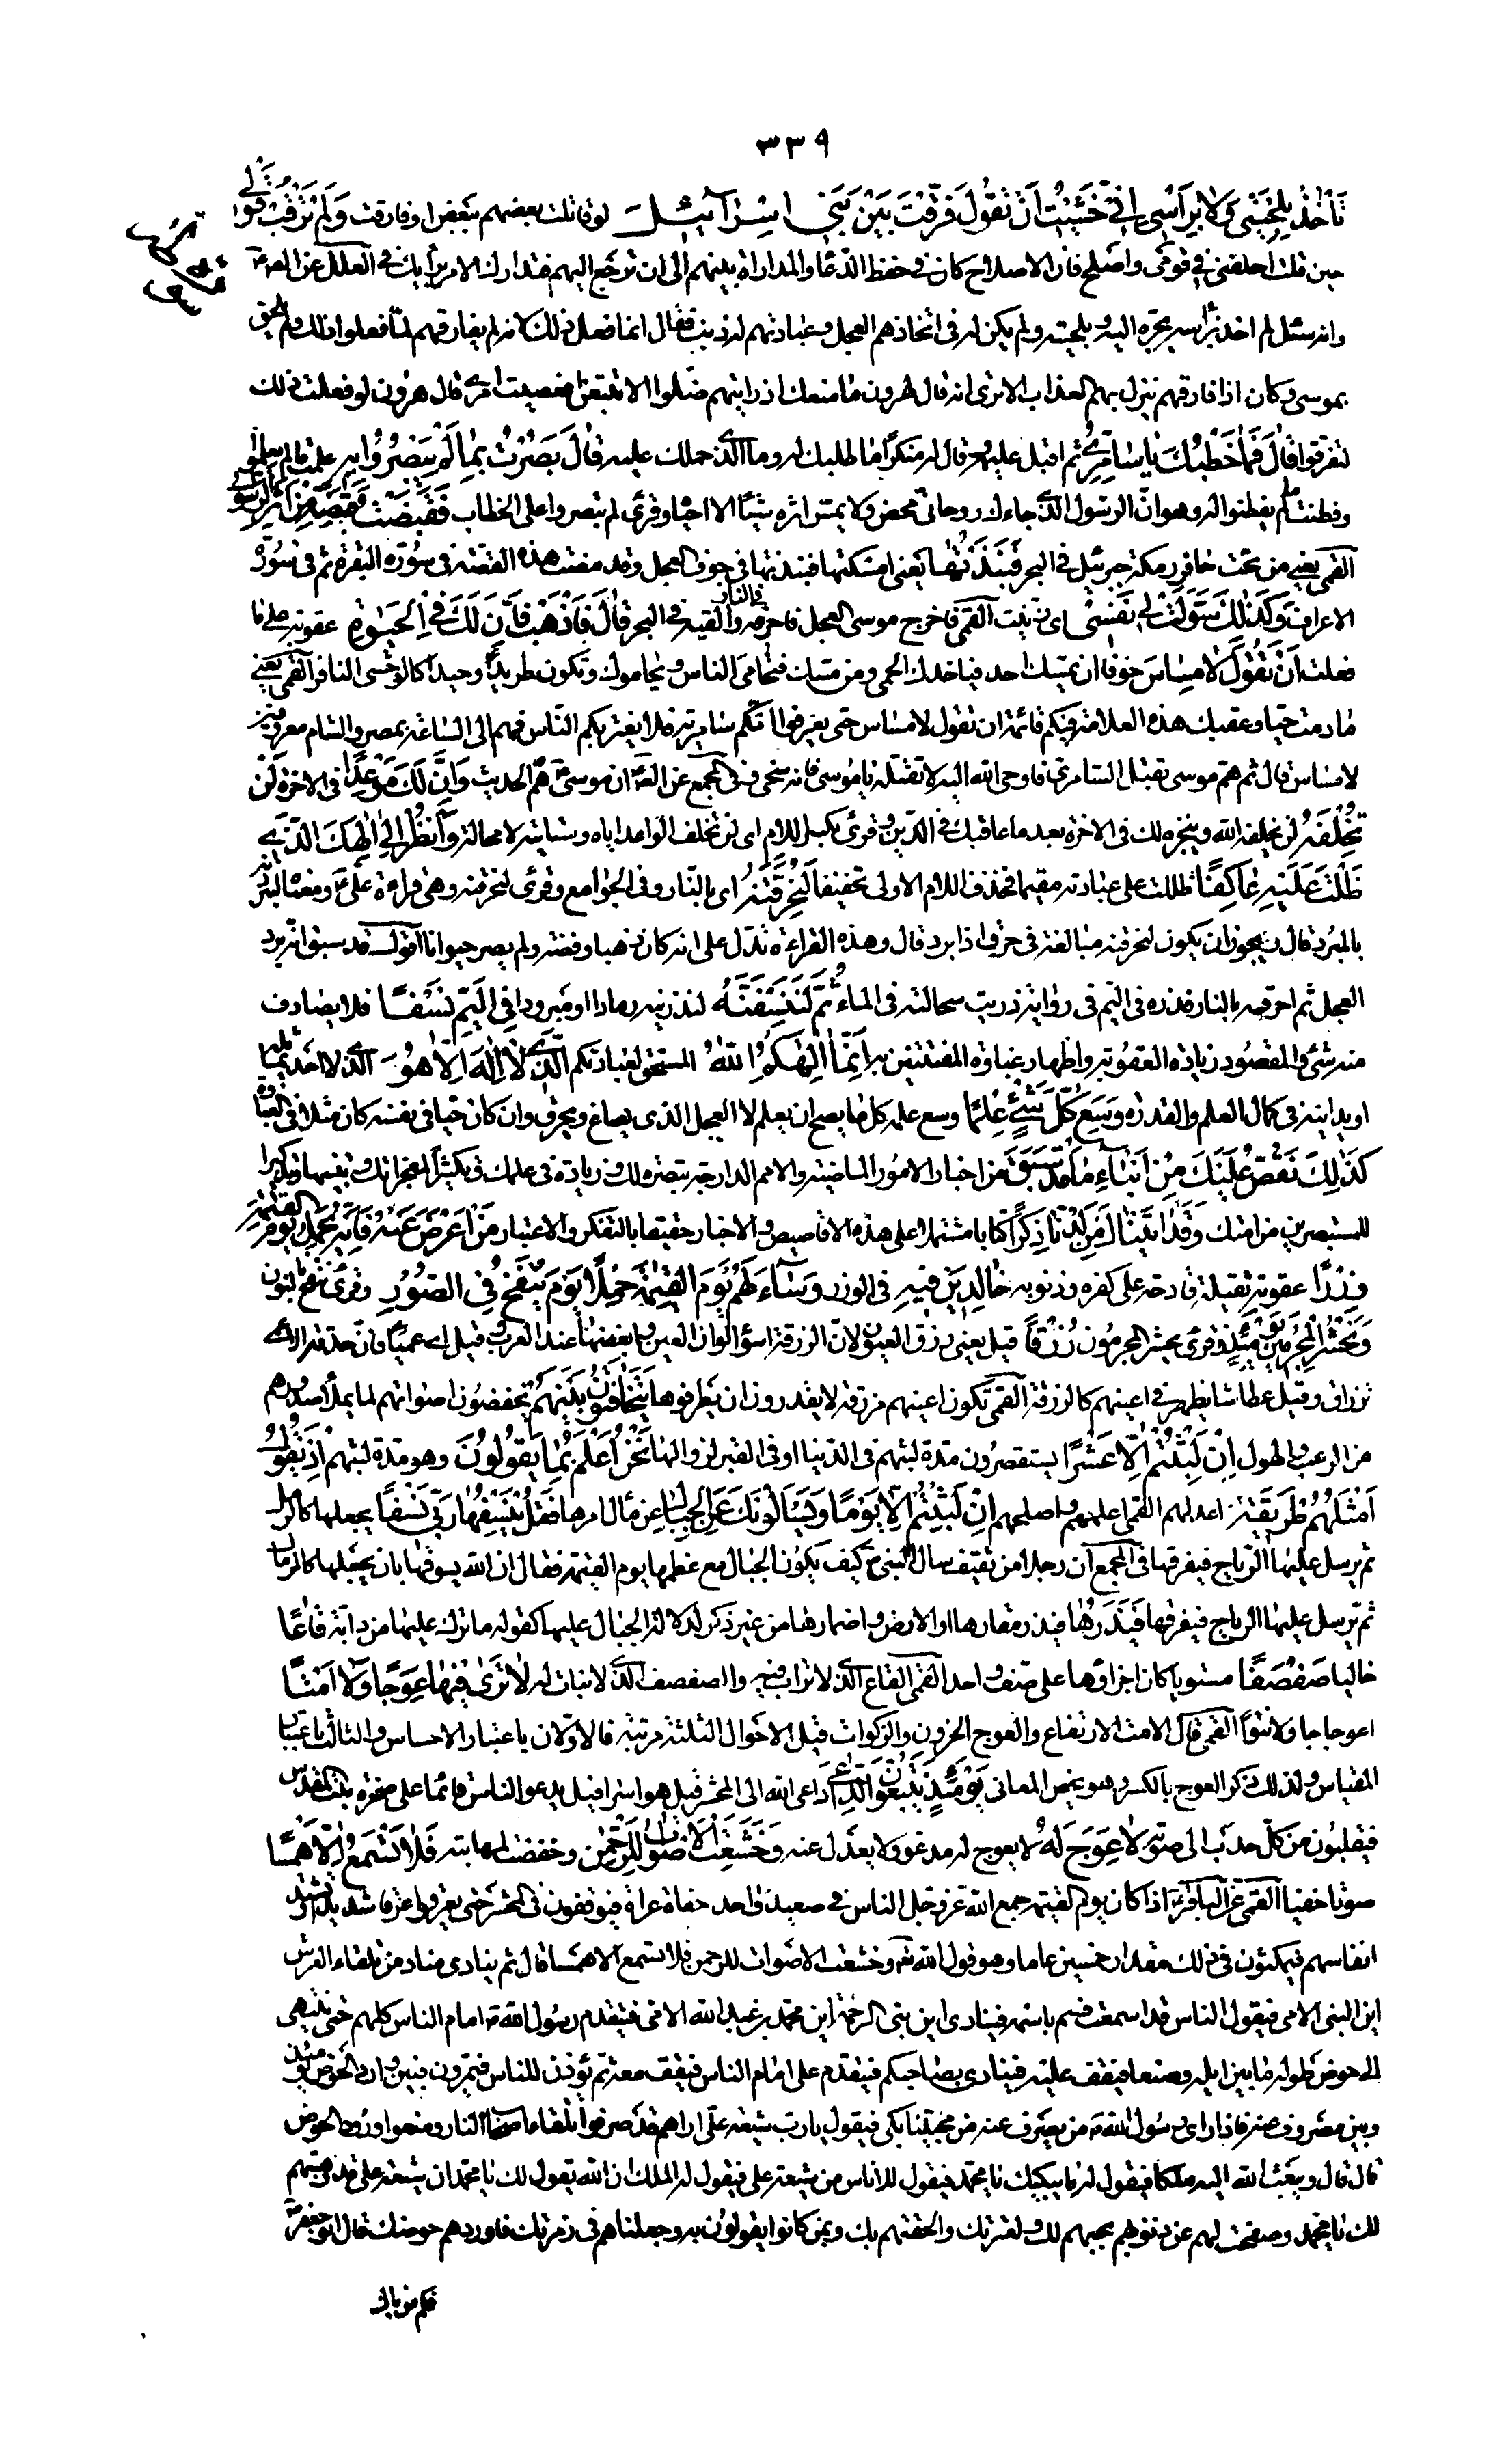 ٣٣٩
تَأْخُذْ بِلِحْيَتِي وَلَا بِرَأْسِي إِنِّي خَشِيتُ أَنْ تَقُولَ فَرَّقْتَ بَيْنَ بَنِي إِسْرَآئِيلَ لو قاتلت بعضهم ببعض او فارقت وَلَمْ تَرْقُبْ قَوْلِي
حين قلت اخلفني في قومي واصلح فان الاصلاح كان في حفظ الدهماء والمداراة بينهم الى ان ترجع اليهم فتدارك الامر برأيك في العلل عن
وانه سئل لم اخذ برأسه يجرّه اليه وبلحيته ولم يكن له في اتخاذهم العجل وعبادتهم له ذنب فقال انما فعل ذلك لانه لم يفارقهم لمّا فعلوا ذلك ولم يلحق
بموسى وكان اذا فارقهم ينزل بهم العذاب الا ترى انه قال لهرون ما منعك اذ رايتهم ضلّوا الّا تتبعن افعصيت امري قال هرون لو فعلت ذلك
لتفرقوا قَالَ فَمَا خَطْبُكَ يَا سَامِرِيُّ ثم اقبل عليه وقال له منكرًا ما طلبك له وما الذي حملك عليه قَالَ بَصُرْتُ بِمَا لَمْ يَبْصُرُوا بِهِ علمت ما لم يعلموا
وفطنت لما لم يفطنوا له وهو انّ الرسول الذي جاءك روحاني محض ولا يمسّ اثره شيئا الا احياه وقرئ لم تبصروا على الخطاب فَقَبَضْتُ قَبْضَةً مِنْ أَثَرِ الرَّسُولِ
القمي يعني من تحت حافر رمكة جبرئيل في البحر فَنَبَذْتُهَا يعني امسكتها فنبذتها في جوف العجل وقد مضت هذه القصّة في سورة البقرة ثم في سورة
الاعراف وَكَذَلِكَ سَوَّلَتْ لِي نَفْسِي اى زيّنت القمي فاخرج موسى العجل فاحرقه في النار والقيه في البحر قَالَ فَاذْهَبْ فَإِنَّ لَكَ فِي الْحَيَوةِ عقوبة على ما
فعلت أَنْ تَقُولَ لَا مِسَاسَ خوفا ان يمسّك احد فياخذك الحمى ومن مسّك فتحامى الناس ويحاموك وتكون طريدًا وحيدا كالوحشى النافر القمي يعني
ما دمت حيّا وعقبك هذه العلامة فيكم قائمة ان تقول لا مساس حتى يعرفوا انكم سامرية فلا يغتر بكم النّاس فهم الى الساعة بمصر والشام معروفين
لا مساس قال ثم همّ موسى بقتل السّامري فاوحى الله اليه لا تقتله يا موسى فانه سخي وفي المجمع عن الصّ ان موسى همّ الحديث وَإِنَّ لَكَ مَوْعِدًا في الآخرة لَنْ
تُخْلَفَهُ لن يخلفه الله وينجزه لك في الآخرة بعد ما عاقبك في الدّنيا وقرئ بكسر اللام اى لن تخلف الواعد ايّاه وستأتيه لا محالة وَانْظُرْ إِلَى إِلَهِكَ الَّذِي
ظَلْتَ عَلَيْهِ عَاكِفًا ظللت على عبادته مقيما فحذف اللام الاولى تخفيفا لَنُحَرِّقَنَّهُ اى بالنّار وفي الجوامع وقرئ لنحرقنه وهي قراءة علي ع ومعناه لنبردنه
بالمبرد قال ويجوز ان يكون لنحرقنه مبالغة في حرق اذا برد قال وهذه القراءة تدل على انه كان ذهبا وفضة ولم يصر حيوانا اقول قد سبق انه برد
العجل ثم احرقه بالنار فذره في اليم في رواية ذريت سحالته في الماء ثُمَّ لَنَنْسِفَنَّهُ لنذرينه رمادا او مبرودا فِي الْيَمِّ نَسْفًا فلا يصادف
منه شئ والمقصود زيادة العقوبة واظهار غباوة المفتتنين به إِنَّمَا إِلَهُكُمُ اللَّهُ المستحق لعبادتكم الَّذِي لَا إِلَهَ إِلَّا هُوَ اذ لا احد يماثله
او يدانيه في كمال العلم والقدرة وَسِعَ كُلَّ شَيْءٍ عِلْمًا وسع علمه كل ما يصح ان يعلم لا العجل الذي يصاغ ويحرق وان كان حيّا في نفسه كان مثلا في الغباوة
كَذَلِكَ نَقُصُّ عَلَيْكَ مِنْ أَنْبَاءِ مَا قَدْ سَبَقَ من اخبار الامور الماضية والامم الدارجة تبصرة لك وزيادة في علمك وتكثيرا لمعجزاتك وتنبيها وتذكيرا
للمستبصرين من امتك وَقَدْ آتَيْنَاكَ مِنْ لَدُنَّا ذِكْرًا كتابا مشتملا على هذه الاقاصيص والاخبار حقيقا بالتفكر والاعتبار مَنْ أَعْرَضَ عَنْهُ فَإِنَّهُ يَحْمِلُ يَوْمَ الْقِيَمَةِ
وِزْرًا عقوبة ثقيلة فادحة على كفره وذنوبه خَالِدِينَ فِيهِ في الوزر وَسَاءَ لَهُمْ يَوْمَ الْقِيَمَةِ حِمْلًا يَوْمَ يُنْفَخُ فِي الصُّورِ وقرئ ننفخ بالنون
وَنَحْشُرُ الْمُجْرِمِينَ يَوْمَئِذٍ وقرئ يحشر المجرمون زُرْقًا قيل يعني زرق العيون لانّ الزرقة اسؤ الوان العين وابغضها عند العرب وقيل اى عميًا فان حدقة الاعمى
تزراق وقيل عطاشا يظهر في اعينهم كالزرقة القمي تكون اعينهم مزرقة لا يقدرون ان يطرفوها يَتَخَافَتُونَ بَيْنَهُمْ يخفضون اصواتهم لما يملأ صدورهم
من الرعب والهول إِنْ لَبِثْتُمْ إِلَّا عَشْرًا يستقصرون مدة لبثهم في الدّنيا او في القبر لزوالها نَحْنُ أَعْلَمُ بِمَا يَقُولُونَ وهو مدة لبثهم إِذْ يَقُولُ
أَمْثَلُهُمْ طَرِيقَةً اعدلهم القمي اعلمهم واصلحهم إِنْ لَبِثْتُمْ إِلَّا يَوْمًا وَيَسْأَلُونَكَ عَنِ الْجِبَالِ عن مآل امرها فَقُلْ يَنْسِفُهَا رَبِّي نَسْفًا يجعلها كالرمل
ثم يرسل عليها الرّياح فيفرقها في المجمع ان رجلا من ثقيف سال النبي ص كيف يكون الجبال مع عظمها يوم القيمة فقال ان الله يسوقها بان يجعلها كالرمال
ثم يرسل عليها الرياح فيفرقها فَيَذَرُهَا فيذر مقارها او الارض واضمارها من غير ذكر لدلالة الجبال عليها كقوله ما ترك عليها من دابّة قَاعًا
خاليا صَفْصَفًا مستويا كان اجزاؤها على صف واحد القمي القاع الذي لا تراب فيه والصفصف الذي لا نبات له لَا تَرَى فِيهَا عِوَجًا وَلَا أَمْتًا
اعوجاجا ولا نتوّا القمي قال الامت الارتفاع والعوج الحزون والذكوات قيل الاحوال الثلثة مرتبة فالاولان باعتبار الاحساس والثالث باعتبار
المقياس ولذلك ذكر العوج بالكسر وهو يخص المعاني يَوْمَئِذٍ يَتَّبِعُونَ الدَّاعِيَ داعى الله الى المحشر قيل هو اسرافيل يدعو الناس قائما على صخرة بيت المقدس
فيقبلون من كلّ حدب الى صوته لَا عِوَجَ لَهُ لا يعوج له مدعو ولا يعدل عنه وَخَشَعَتِ الْأَصْوَاتُ لِلرَّحْمَنِ وخفضت لمهابته فَلَا تَسْمَعُ إِلَّا هَمْسًا
صوتا خفيا القمي عن الباقر ع اذا كان يوم القيمة جمع الله عز وجل الناس في صعيد واحد حفاة عراة فيوقفون في المحشر حتى يعرقوا عرقا شديدا وتشتد
انفاسهم فيمكثون في ذلك مقدار خمسين عاما وهو قول الله تع وخشعت الاصوات للرحمن فلا تسمع الا همسا قال ثم ينادى مناد من تلقاء العرش
اين النبي الامي فيقول الناس قد اسمعت فسم باسمه فينادى اين نبي الرحمة اين محمد بن عبد الله الامي فيتقدم رسول الله ص امام الناس كلهم حتى ينتهى
الى حوض طوله ما بين ايله وصنعا فيقف عليه فينادى بصاحبكم فيتقدم على امام الناس فيقف معه ثم يؤذن للناس فيمرون فبين وارد الحوض يومئذ
وبين مصروف عنه فاذا راى رسول الله ص من يصرف عنه من محبّينا بكى فيقول يا رب شيعة على اراهم قد صرفوا تلقاء اصحاب النار ومنعوا ورود الحوض
قال قال ويبعث الله اليه ملكا فيقول له ما يبكيك يا محمد فيقول لاناس من شيعة على فيقول له الملك ان الله يقول لك يا محمد ان شيعة على قد وهبتهم
لك يا محمد وصفحت لهم عن ذنوبهم بحبهم لك ولعترتك والحقتهم بك وبمن كانوا يقولون به وجعلناهم في زمرتك فاوردهم حوضك قال ابو جعفر ع
فكم من باك